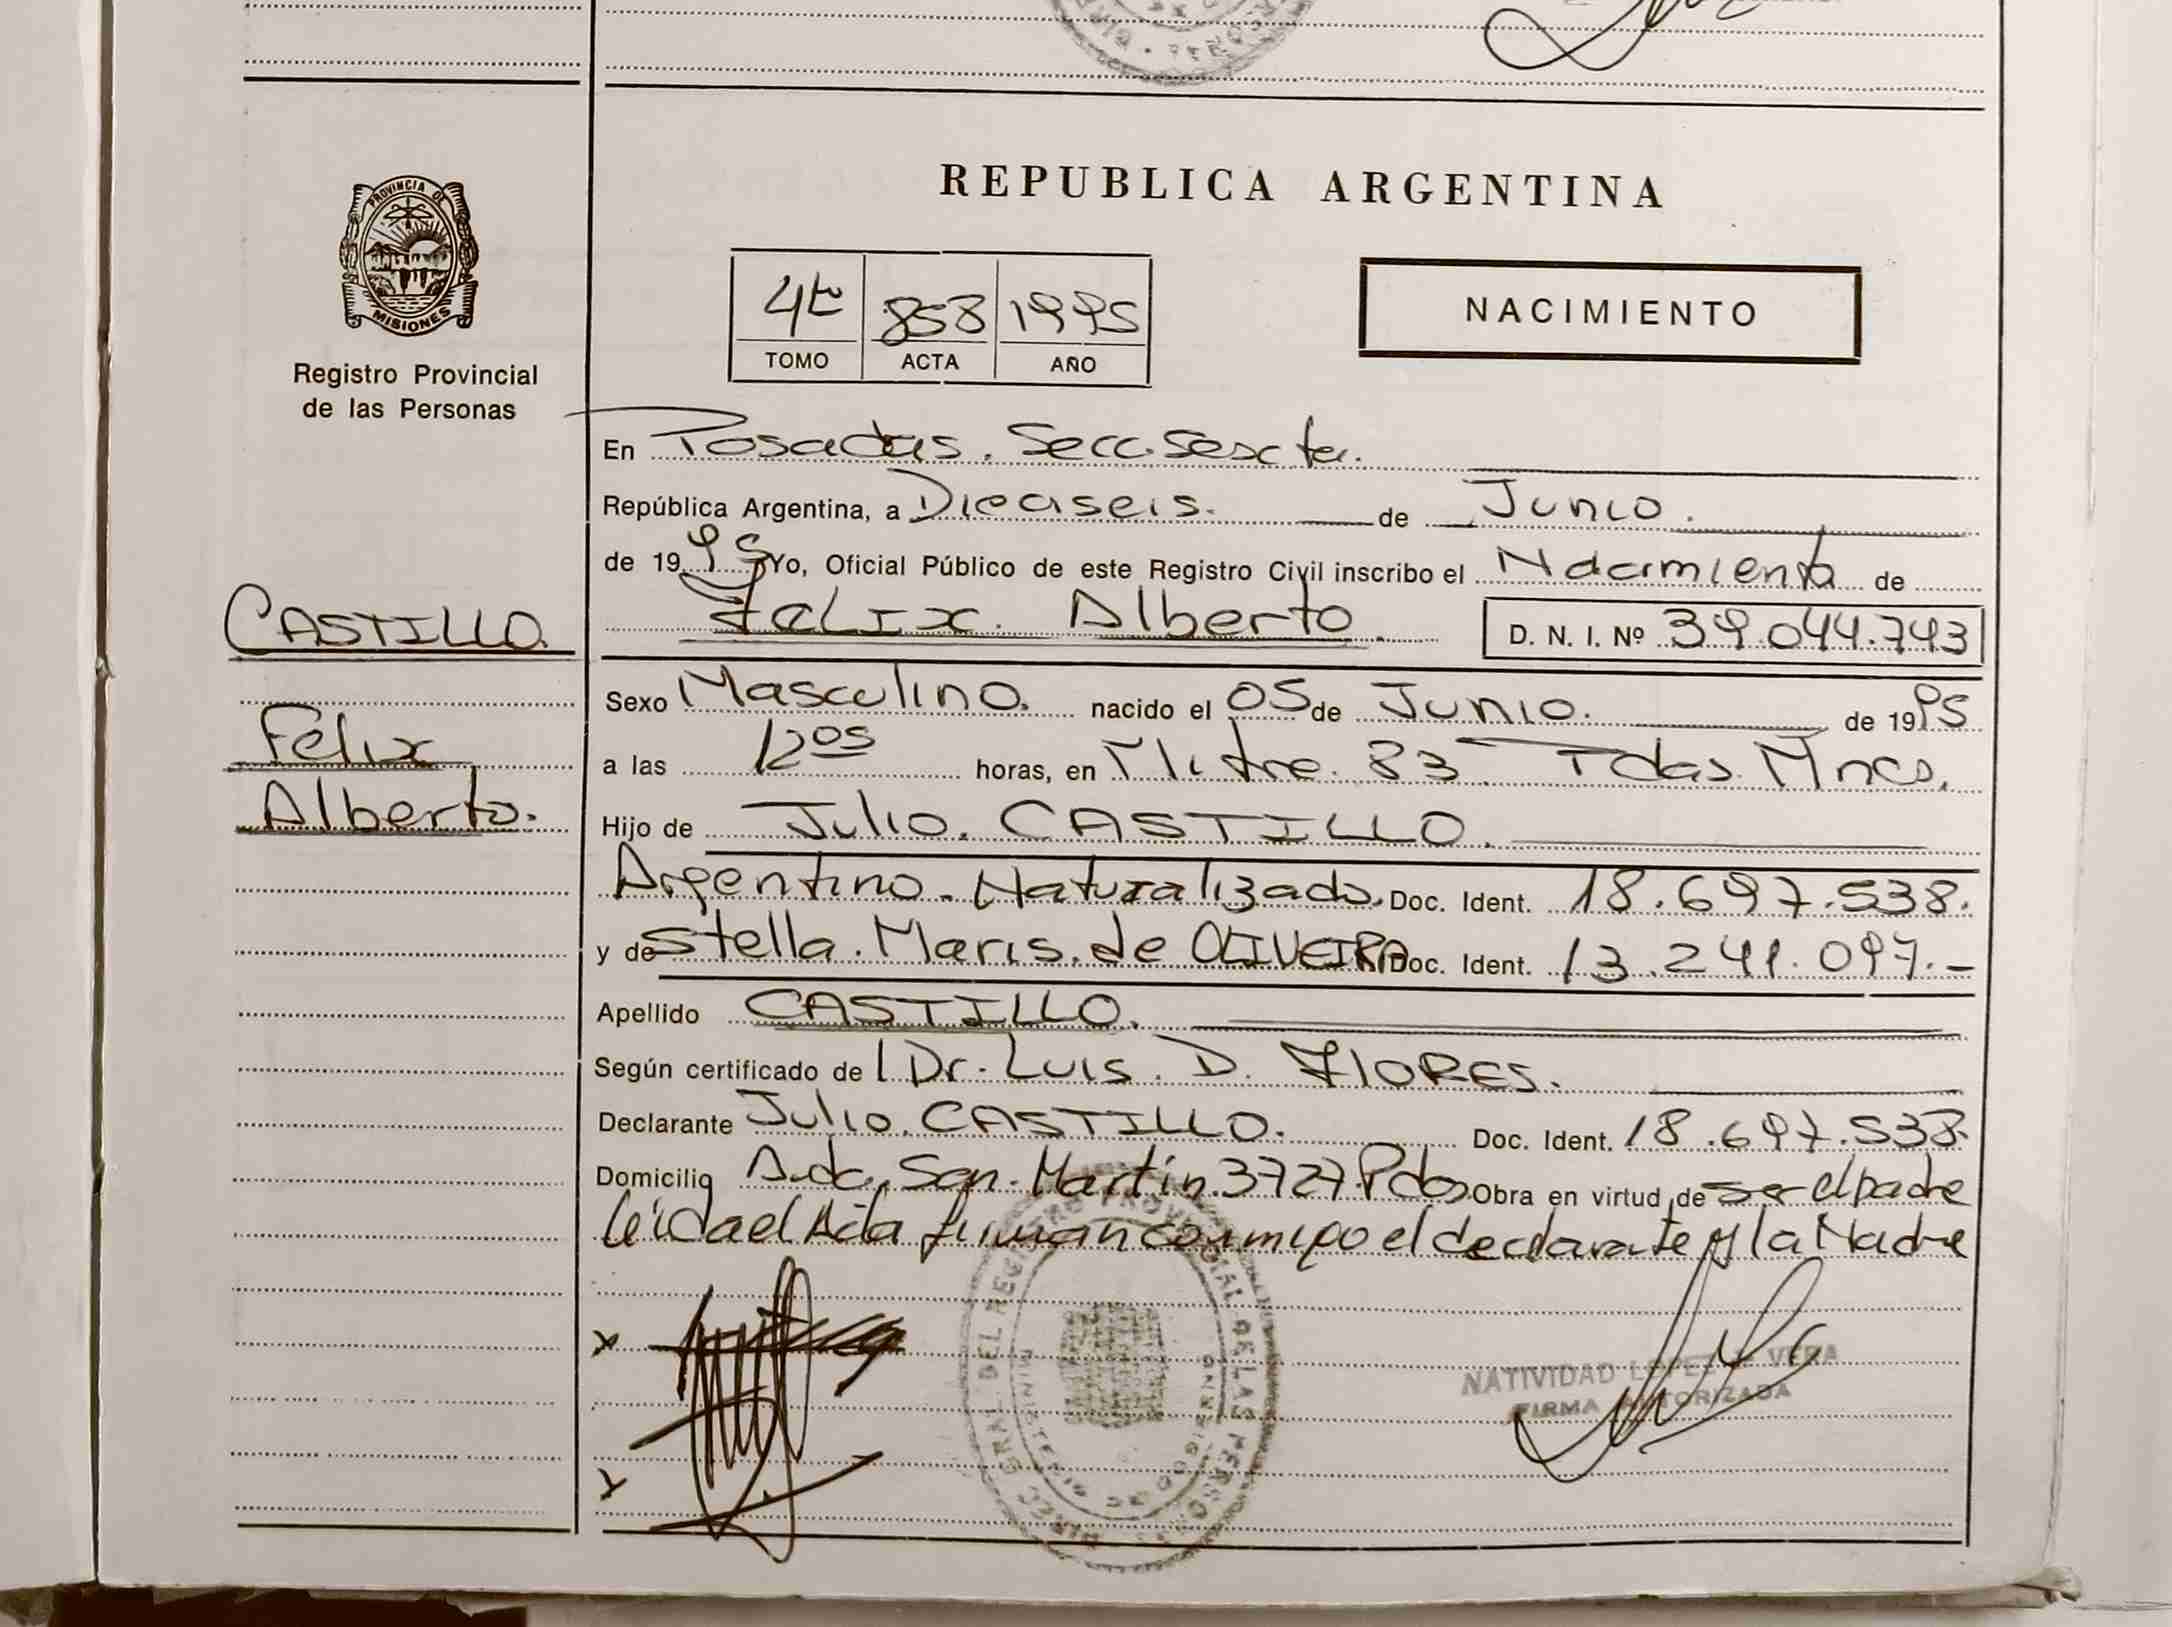 REPUBLICA ARGENTINA
PROVINCIA DE
MISIONES
Registro Provincial
de las Personas
4to 858 1995
TOMO ACTA AÑO
NACIMIENTO
En Posadas. Secc. Sexta.
República Argentina, a Dieciseis. de Junio.
de 1995 Yo, Oficial Público de este Registro Civil inscribo el Nacimiento de
CASTILLO.
Felix. Alberto. D. N. I. Nº 39.044.743
Sexo Masculino. nacido el 05 de Junio. de 1995
Felix
a las 12 05 horas, en Mitre. 83 Pdas. Mnes.
Alberto.
Hijo de Julio. CASTILLO.
Argentino. Naturalizado. Doc. Ident. 18.697.538.
y de Stella. Maris. de OLIVEIRA Doc. Ident. 13.241.097.-
Apellido CASTILLO.
Según certificado de Dr. Luis. D. FLORES.
Declarante Julio. CASTILLO. Doc. Ident. 18.697.538.
Domicilio Avda. San. Martin. 3727 Pdas Obra en virtud de ser el padre
leida el Acta firman conmigo el declarante y la Madre
NATIVIDAD LOPEZ VERA
FIRMA AUTORIZADA